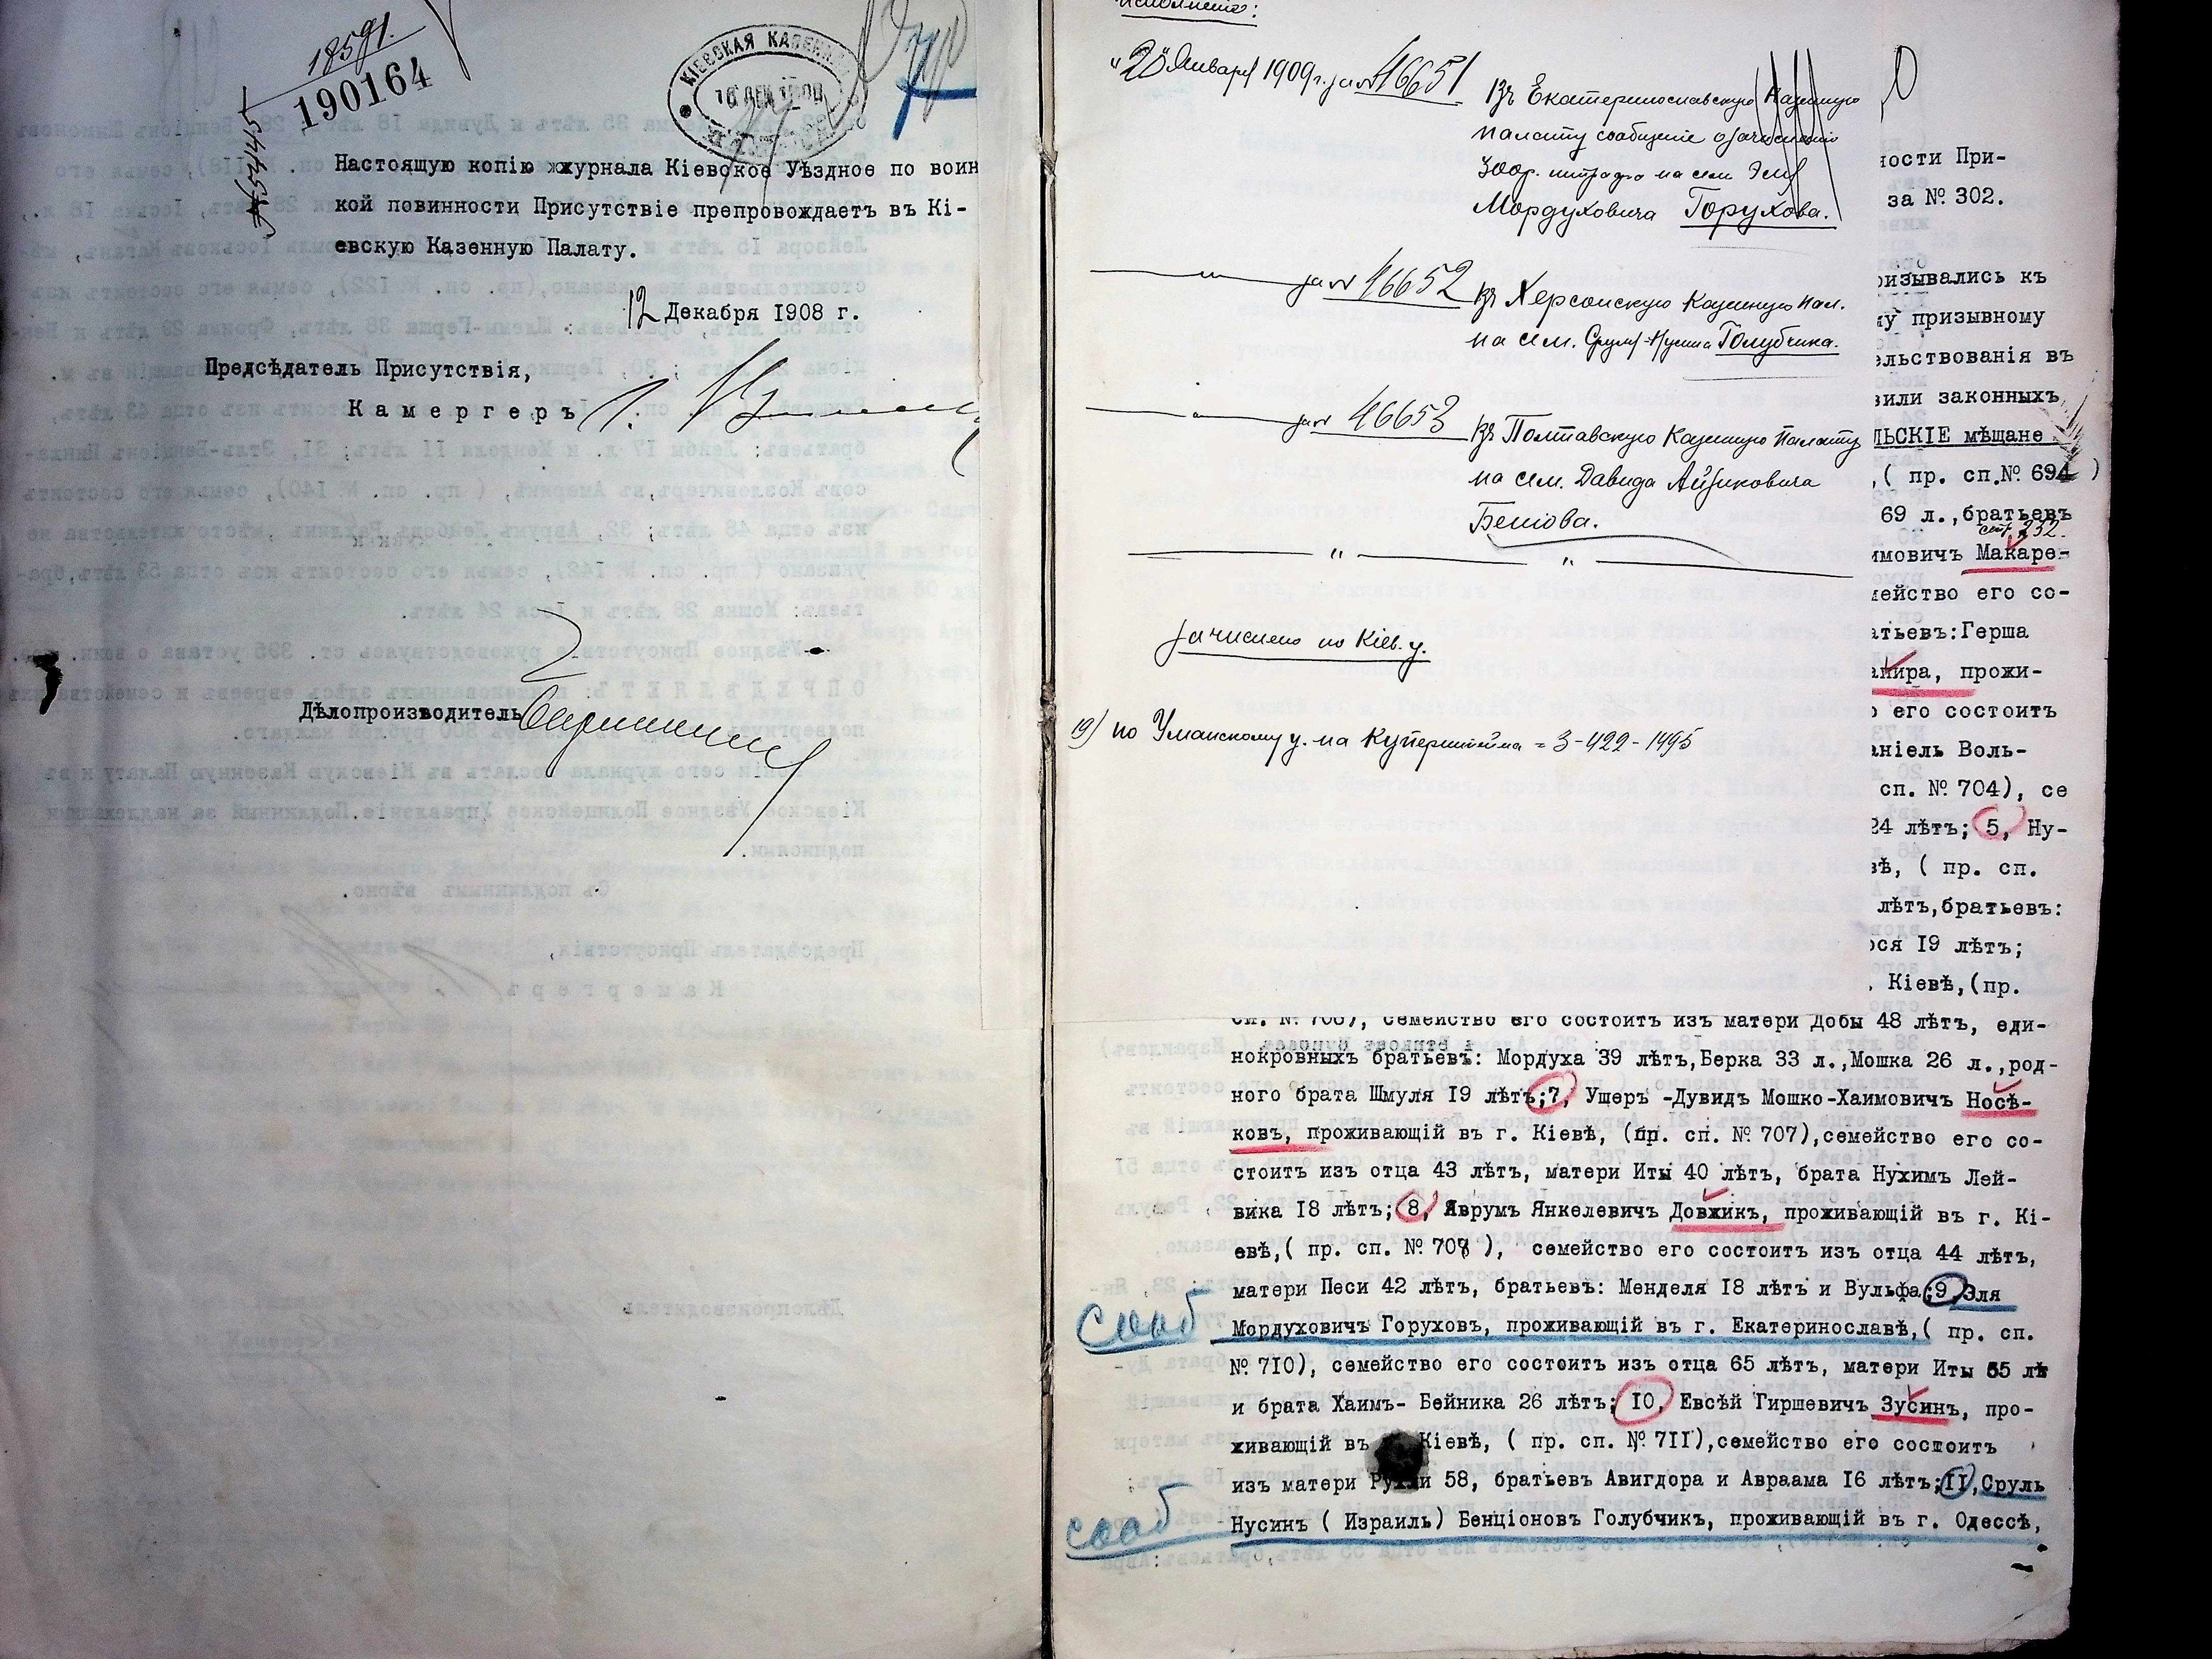 18591.
190164
КІЕВСКАЯ КАЗЕННАЯ
Настоящую копію журнала Кіевское Уѣздное по воин
кой повинности Присутствіе препровождаетъ въ Кі-
евскую Казенную Палату.
12 Декабря 1908 г.
Предсѣдатель Присутствія,
Камергеръ
Дѣлопроизводитель
"20" Января 1909 г. за № 46651
Въ Екатеринославскую Казенную
палату сообщеніе о зачисленіи
300р. штрафа на сем. Эли
Мордуховича Горухова.
за № 46652
Въ Херсонскую Казенную пал.
на сем. Сруля-Нусина Голубчика.
за № 46653
Въ Полтавскую Казенную палату
на сем. Давида Айзиковича
зачислено по Кіев. у.
19) по Уманскому у. на Куперштейна = 3-422-1495
ности При-
за № 302.
ризывались къ
му призывному
ельствованія въ
вили законныхъ
ЛЬСКІЕ мѣщане
,( пр. сп.№ 694 )
69 л.,братьевъ
стр. 232.
имовичъ Макаре-
мейство его со-
атьевъ:Герша
анира, прожи-
о его состоитъ
аніель Воль-
сп. № 704), се
24 лѣтъ; 5, Ну-
вѣ, ( пр. сп.
лѣтъ,братьевъ:
ося 19 лѣтъ;
, Кіевѣ,(пр.
сп. № 706), семейство его состоитъ изъ матери Добы 48 лѣтъ, еди-
нокровныхъ братьевъ: Мордуха 39 лѣтъ,Берка 33 л.,Мошка 26 л.,род-
ного брата Шмуля 19 лѣтъ;7, Ушеръ -Дувидъ Мошко-Хаимовичъ Носѣ-
ковъ, проживающій въ г. Кіевѣ, (пр. сп. № 707),семейство его со-
стоитъ изъ отца 43 лѣтъ, матери Иты 40 лѣтъ, брата Нухимъ Лей-
вика 18 лѣтъ; 8, Аврумъ Янкелевичъ Довжикъ, проживающій въ г. Кі-
евѣ,( пр. сп. № 708 ), семейство его состоитъ изъ отца 44 лѣтъ,
матери Песи 42 лѣтъ, братьевъ: Менделя 18 лѣтъ и Вульфа;9,Эля
сооб
Мордуховичъ Горуховъ, проживающій въ г. Екатеринославѣ,( пр. сп.
№ 710), семейство его состоитъ изъ отца 65 лѣтъ, матери Иты 65 лѣ
и брата Хаимъ- Бейника 26 лѣтъ; 10, Евсѣй Гиршевичъ Зусинъ, про-
живающій въ Кіевѣ, ( пр. сп. № 711),семейство его состоитъ
изъ матери 58, братьевъ Авигдора и Авраама 16 лѣтъ;11,Сруль
сооб
Нусинъ ( Израиль) Бенціоновъ Голубчикъ, проживающій въ г. Одессѣ,